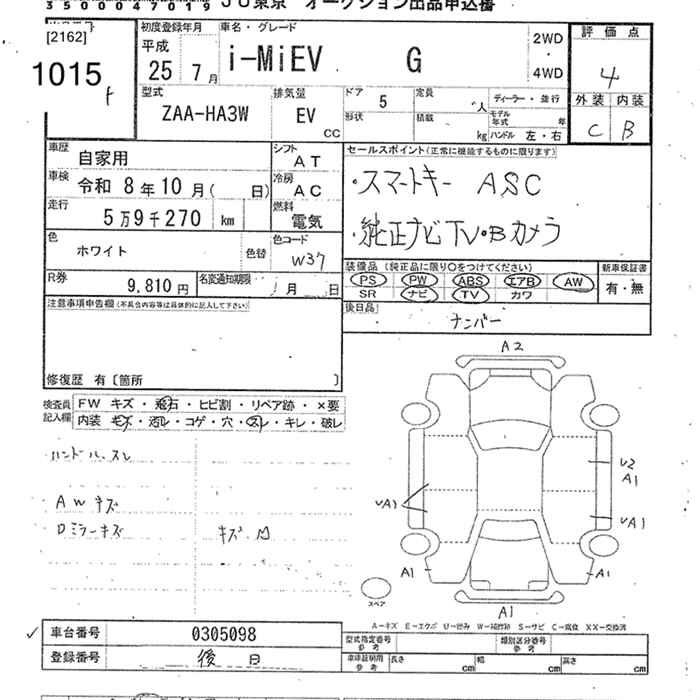 35000047019 JU東京 オークション出品申込書
[2162]
1015
初度登録年月
平成
25 7月
車名・グレード
i-MiEV G
2WD
・
4WD
評価点
4
外装 内装
C B
型式
ZAA-HA3W
排気量
EV
CC
ドア 5
定員 人
ディーラー・並行
形状
積載 kg
モデル年式 年
ハンドル 左・右
車歴 自家用
シフト AT
車検 令和 8年10月( 日)
冷房 AC
走行 5万9千270 km
燃料 電気
色 ホワイト 色替
色コード W37
R券 9,810円
名変通知期限 月 日
セールスポイント(正常に機能するものに限ります)
・スマートキー ASC
・純正ナビTV・Bカメラ
装備品(純正品に限り○をつけてください)
新車保証書
PS PW ABS エアB AW
SR ナビ TV カワ
有・無
後日品
ナンバー
注意事項申告欄(不具合内容等は具体的に記入して下さい)
修復歴 有〔箇所 〕
検査員記入欄
FW キズ・飛石・ヒビ割・リペア跡・×要
内装 キズ・汚レ・コゲ・穴・スレ・キレ・破レ
ハンドル、スレ
AWキズ
Dミラーキズ
キズ、凹
A2
U2
A1
UA1
UA1
A1
A1
A1
スペア
A-キズ E-エクボ U-凹み W-補修跡 S-サビ C-腐食 XX-交換済
車台番号 0305098
登録番号 後日
型式指定番号
参考
類別区分番号
参考
車庫証明用
参考
長さ cm 幅 cm 高さ cm